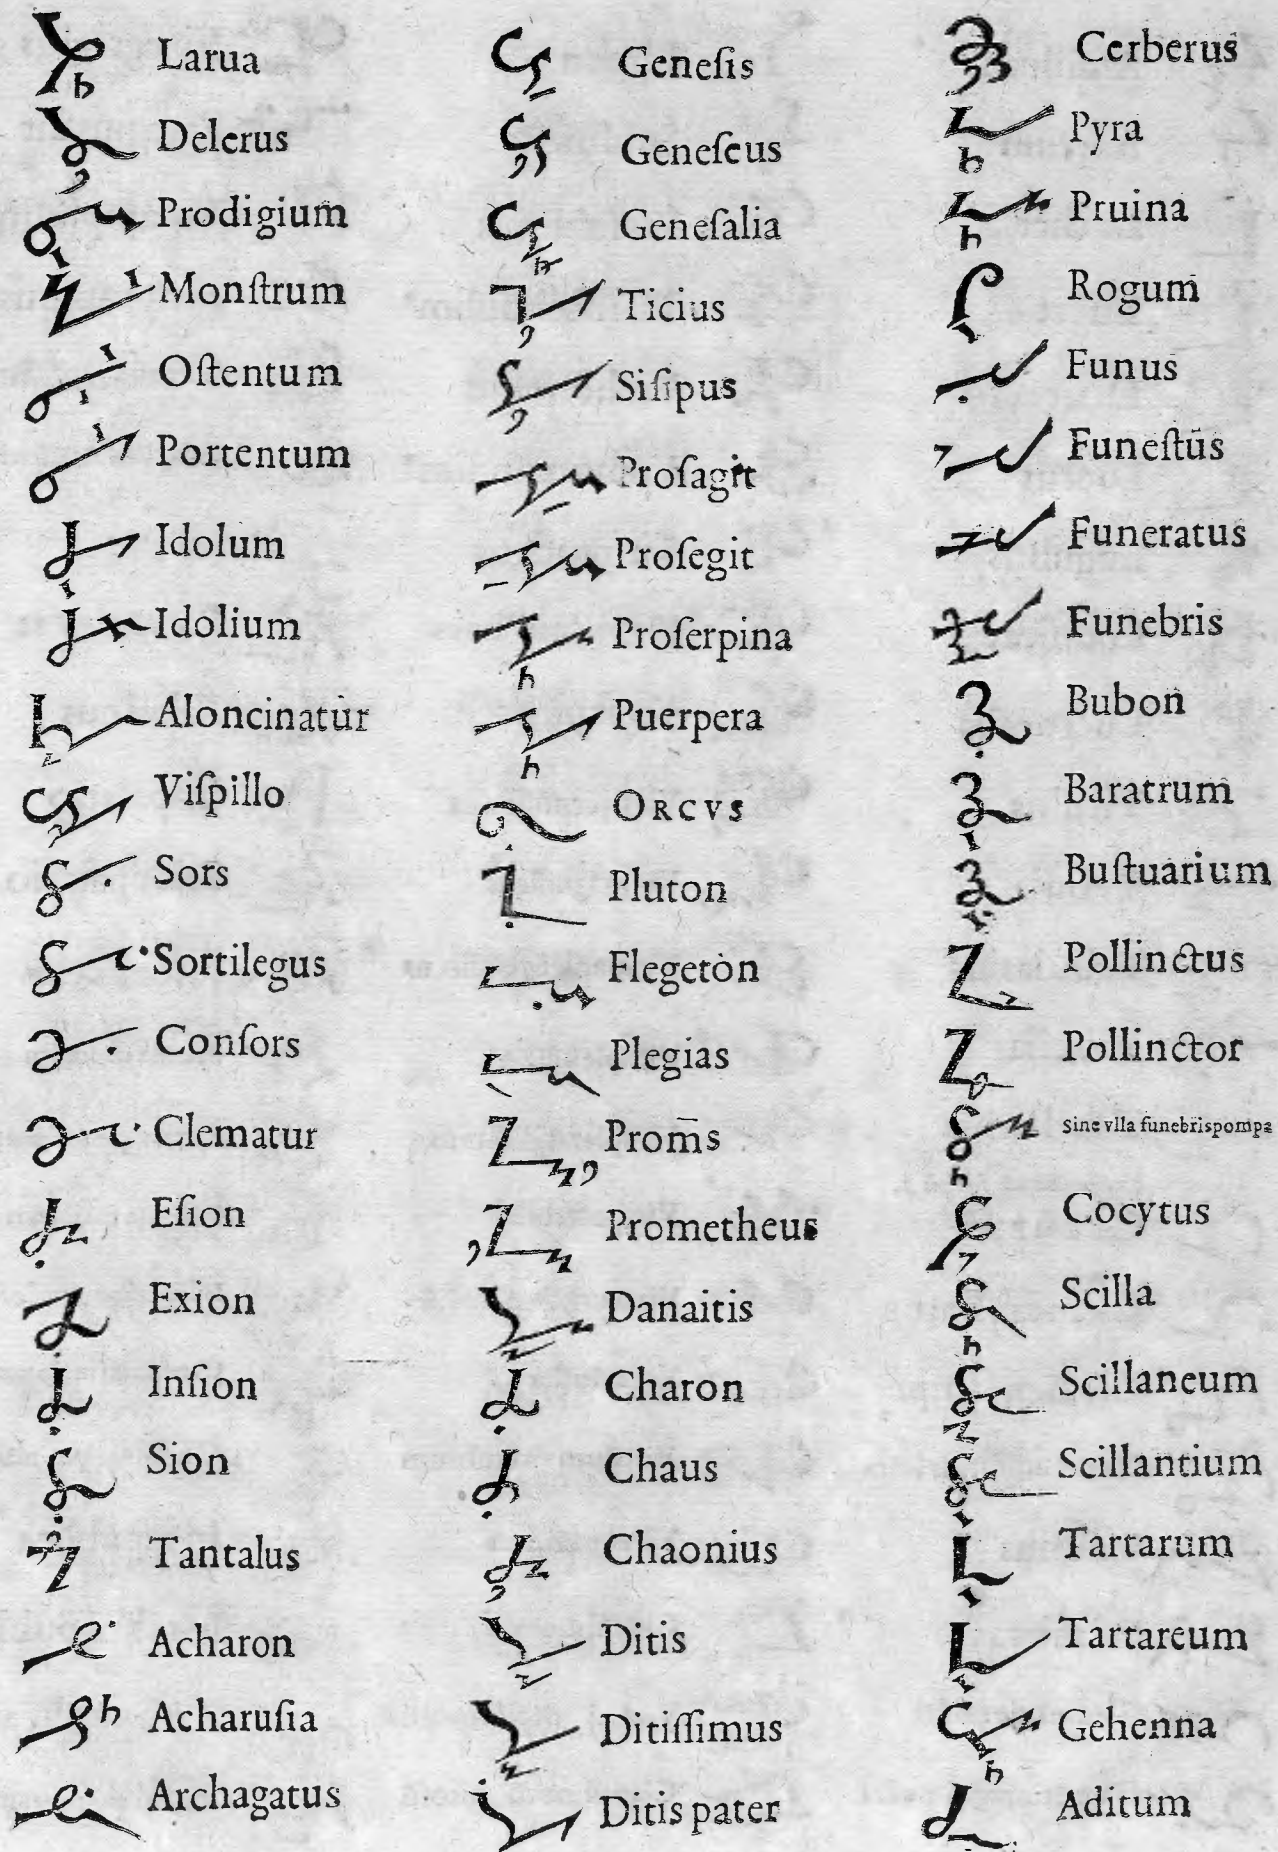 Larua
Delerus
Prodigium
Monſtrum
Oſtentum
Portentum
Idolum
Idolium
Aloncinatur
Viſpillo
Sors
Sortilegus
Conſors
Clematur
Eſion
Exion
Inſion
Sion
Tantalus
Acharon
Acharuſia
Archagatus
Geneſis
Geneſeus
Geneſalia
Ticius
Siſipus
Proſagit
Proſegit
Proſerpina
Puerpera
ORCVS
Pluton
Flegeton
Plegias
Prom̄s
Prometheus
Danaitis
Charon
Chaus
Chaonius
Ditis
Ditiſſimus
Ditis pater
Cerberus
Pyra
Pruina
Rogum
Funus
Funeſtus
Funeratus
Funebris
Bubon
Baratrum
Buſtuarium
Pollinctus
Pollinctor
Sine vlla funebrispompa
Cocytus
Scilla
Scillaneum
Scillantium
Tartarum
Tartareum
Gehenna
Aditum